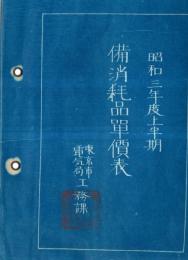 昭和三年度上半期
備消耗品單價表
東京市
電気局工務課